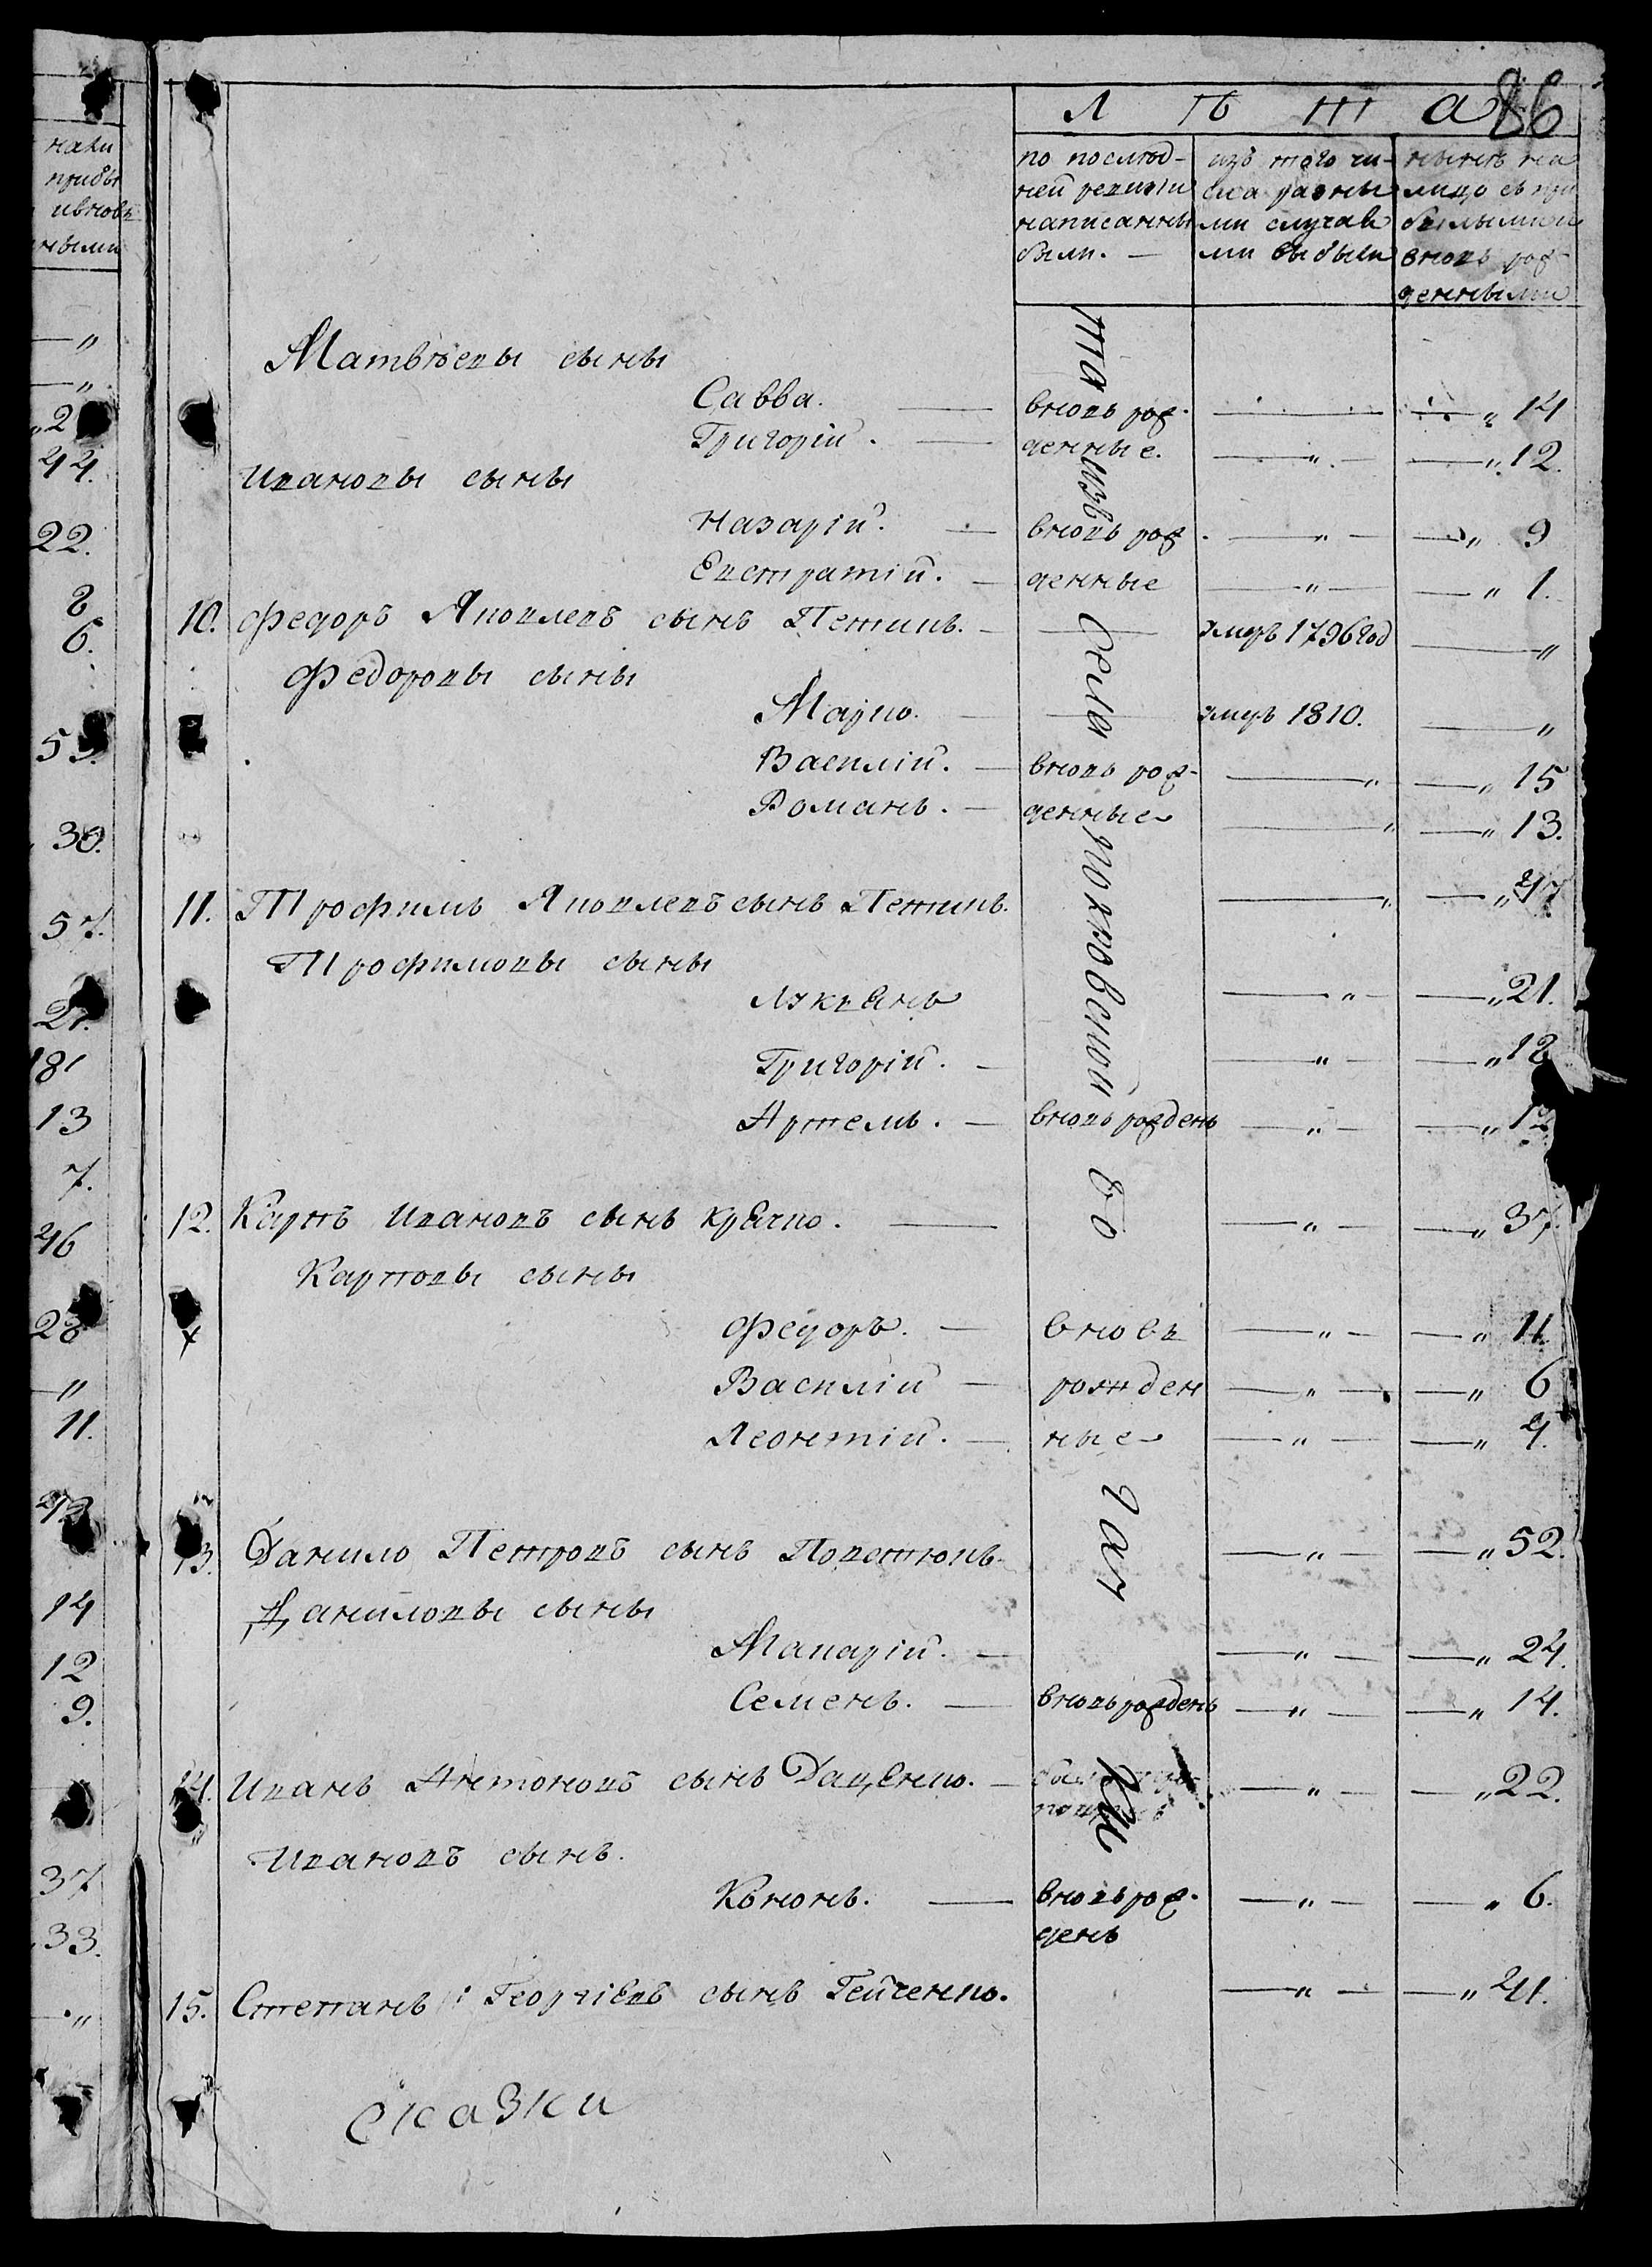 86
Лѣта
по послѣд-
ней ревизіи
написанны
были. —
изъ того чи-
сла разны
ми случая
ми выбыли
нынѣ на
лицо съ при
былыми и
вновь рож-
денными
Матвѣевы сыны
Савва. — вновь рож- — „ 14
Григорій. — денные. — „ — „ 12.
Ивановы сыны
Назарій. — вновь рож — „ — „ 9
Евстратій. — денные — „ — „ 1.
10. Федоръ Яковлевъ сынъ Петинъ. — — умеръ 1796 год — „
Федоровы сыны
Марко. — — умеръ 1810. — „
Василій. — вновь рож- — „ — „ 15
Романъ. — денные — „ — „ 13.
11. Трофимъ Яковлевъ сынъ Петинъ. — „ — „ 47
Трофимовы сыны
Лукьянъ — „ — „ 21.
Григорій. — — „ — „ 18
Артемъ. — вновь рожденъ — „ — „ 12
12. Карпъ Ивановъ сынъ Крячко. — — „ — „ 37.
Карповы сыны
Федоръ. — вновь — „ — „ 11.
Василій — рожден — „ — „ 6
Леонтій. — ные — „ — „ 4.
13. Данило Петровъ сынъ — „ — „ 52.
Даниловы сыны
Макарій. — — „ — „ 24.
Семенъ. — вновь рожденъ — „ — „ 14.
14. Иванъ Антоновъ сынъ Даценко. — — „ — „ 22.
Ивановъ сынъ.
Кононъ. — вновь рож- — „ — „ 6.
денъ
15. Степанъ Георгіевъ сынъ Гейченко. — „ — „ 41.
сказки
та изъ села покровской
нали
прибы
ивновь
ными
— „
— „
44.
22.
8
6.
30.
57.
181
13
7.
46
28
— „
11.
14
12
9.
37
33.
— „